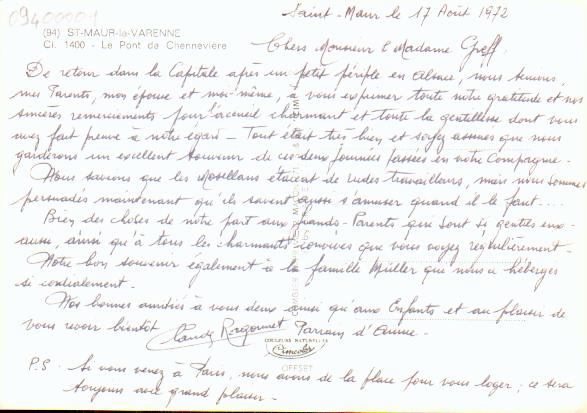 09400001
Saint-Maur le 17 Août 1972
(94) ST-MAUR-la-VARENNE
Ci. 1400 - Le Pont de Chennevière
Chers Monsieur & Madame Greff.
De retour dans la Capitale après un petit périple en Alsace, nous tenions,
mes Parents, mon épouse et moi-même, à vous exprimer toute notre gratitude et nos
sincères remerciements pour l'accueil charmant et toute la gentillesse dont vous
avez fait preuve à notre égard - Tout était très bien et soyez assurés que nous
garderons un excellent souvenir de ces deux journées passées en votre Compagnie -
Nous savions que les Mosellans étaient de rudes travailleurs, mais nous sommes
persuadés maintenant qu'ils savent aussi s'amuser quand il le faut....
Bien des choses de notre part aux Grands-Parents que sont si gentils eux-
aussi, ainsi qu'à tous les charmants convives que vous voyez régulièrement -
Notre bon souvenir également à la famille Müller qui nous a hébergés
si cordialement -
Nos bonnes amitiés à vous deux ainsi qu'aux Enfants et au plaisir de
vous revoir bientôt Parrain d'
COULEURS NATURELLES
Cimcolor
OFFSET
P.S. Si vous venez à Paris, nous avons de la place pour vous loger ; ce sera
toujours avec grand plaisir -